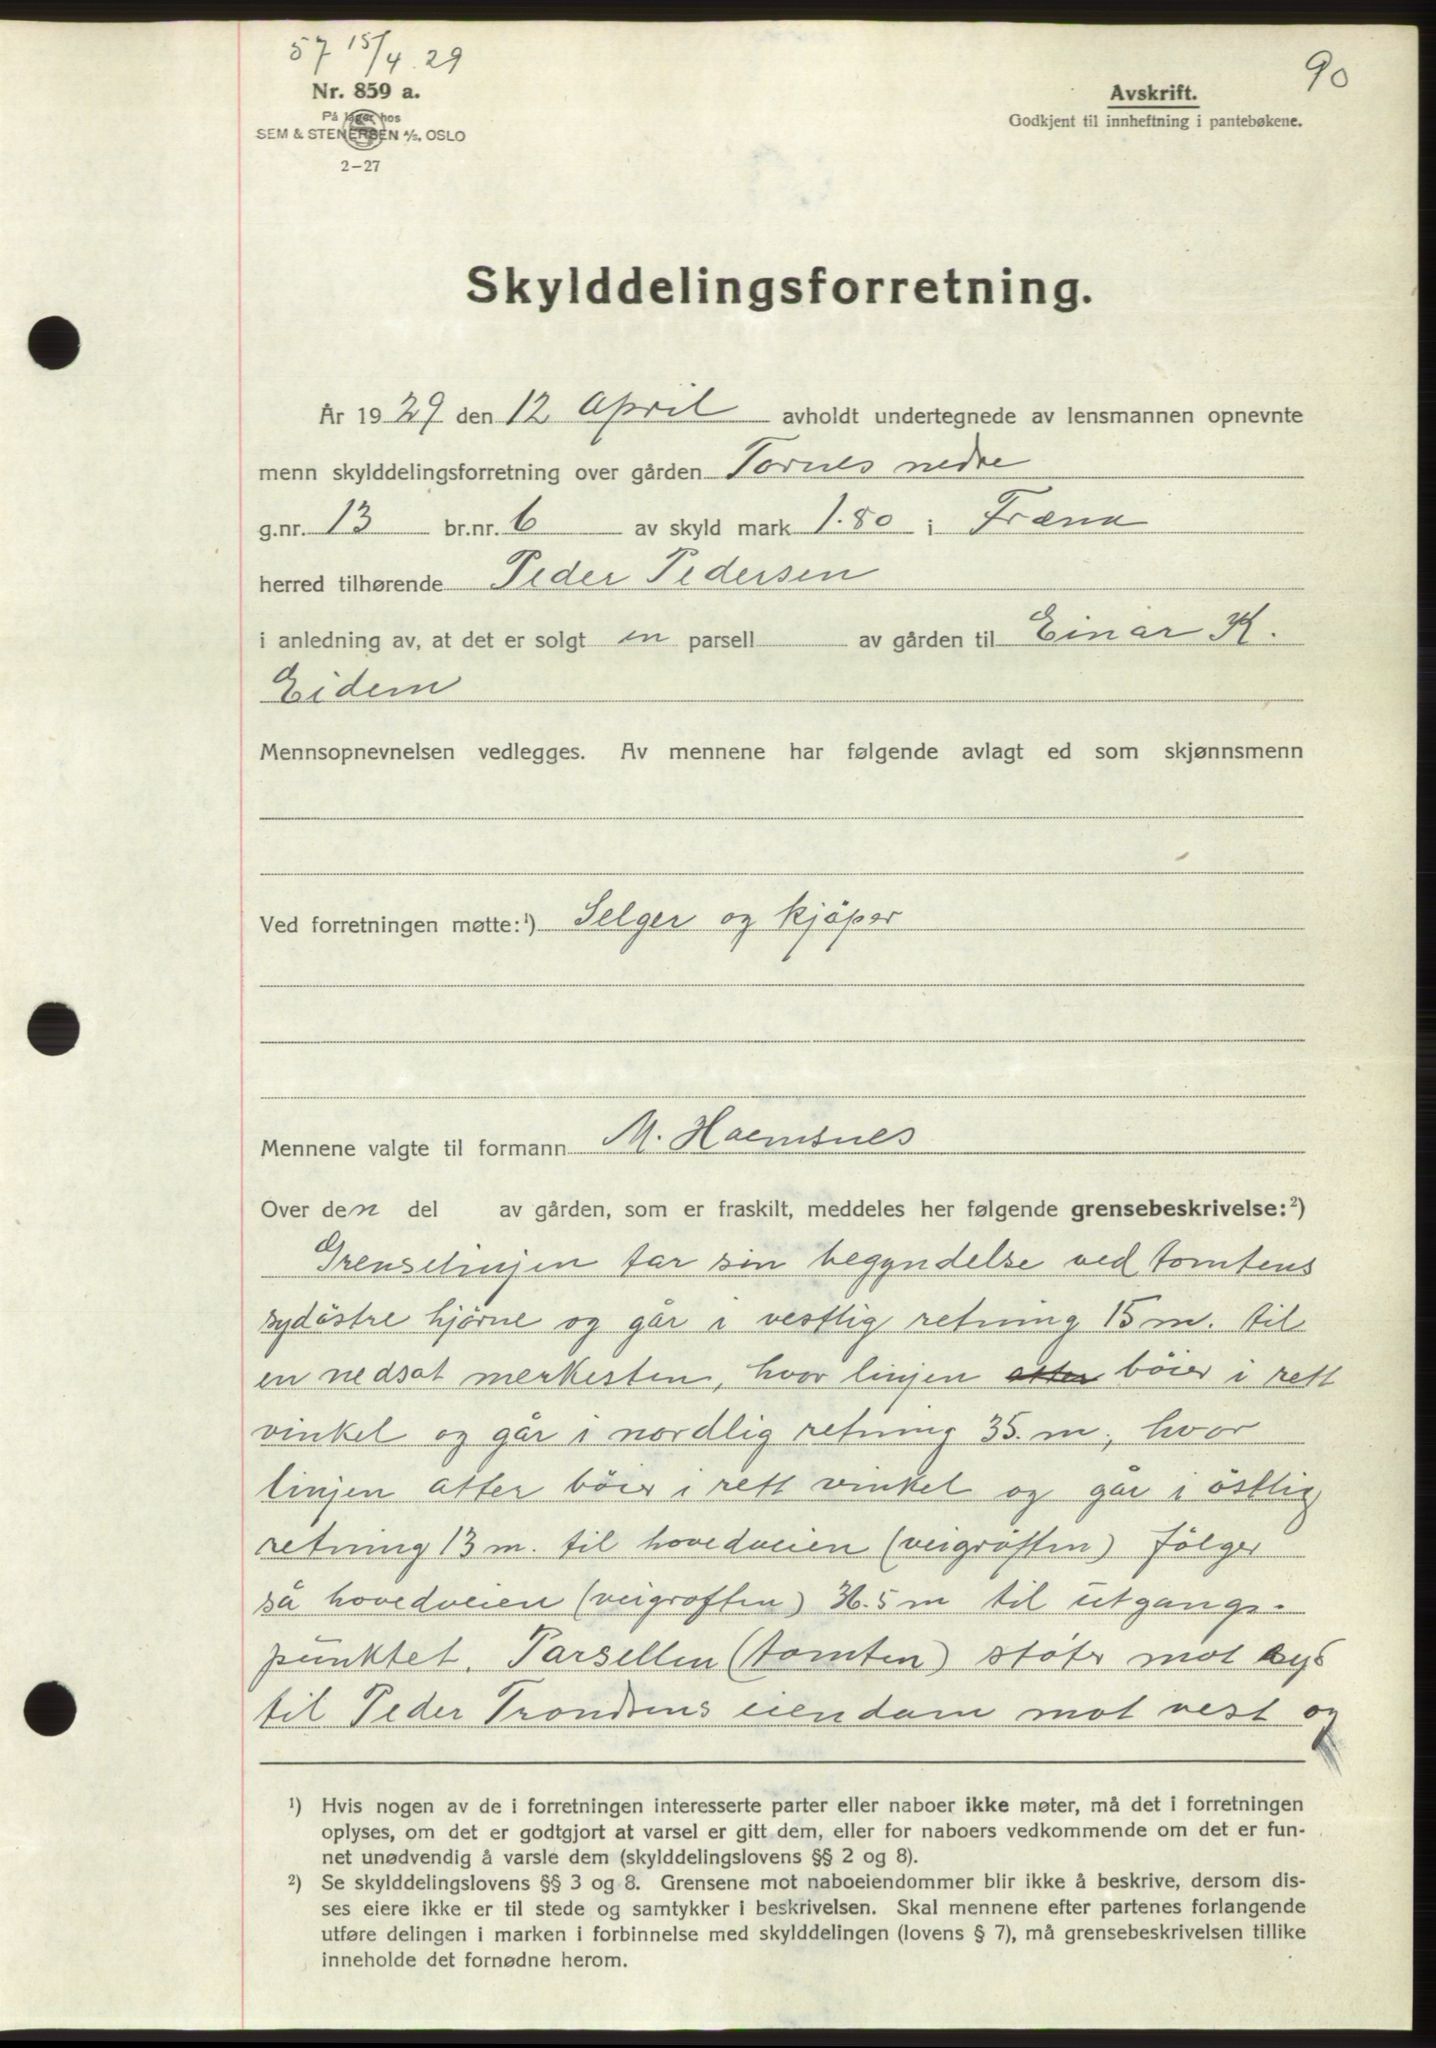 57 15/4 29
90
Nr. 859 a.
På lager hos
SEM & STENERSEN A/S, OSLO
2–27
Avskrift.
Godkjent til innheftning i pantebøkene.
Skylddelingsforretning.
År 1929 den 12 April avholdt undertegnede av lensmannen opnevnte
menn skylddelingsforretning over gården Tornes nedre
g.nr. 13 br.nr. 6 av skyld mark 1.80 i Fræna
herred tilhørende Peder Pedersen
i anledning av, at det er solgt en parsell av gården til Einar K.
Eidem
Mennsopnevnelsen vedlegges. Av mennene har følgende avlagt ed som skjønnsmenn
Ved forretningen møtte:¹) Selger og kjöper
Mennene valgte til formann M. Haemsnes
Over den del av gården, som er fraskilt, meddeles her følgende grensebeskrivelse:²)
Grenselinjen tar sin begyndelse ved tomtens
sydöstre hjörne og går i vestlig retning 15 m. til
en nedsat merkesten, hvor linjen atter böier i rett
vinkel og går i nordlig retning 35. m., hvor
linjen atter böier i rett vinkel og går i östlig
retning 13 m. til hovedveien (veigröften) fölger
så hovedveien (veigroften) 36.5 m til utgangs-
punktet. Parsellen (tomten) støter mot syd
til Peder Trondsens eiendom mot vest og
¹) Hvis nogen av de i forretningen interesserte parter eller naboer ikke møter, må det i forretningen
oplyses, om det er godtgjort at varsel er gitt dem, eller for naboers vedkommende om det er fun-
net unødvendig å varsle dem (skylddelingslovens §§ 2 og 8).
²) Se skylddelingslovens §§ 3 og 8. Grensene mot naboeiendommer blir ikke å beskrive, dersom dis-
ses eiere ikke er til stede og samtykker i beskrivelsen. Skal mennene efter partenes forlangende
utføre delingen i marken i forbinnelse med skylddelingen (lovens § 7), må grensebeskrivelsen tillike
inneholde det fornødne herom.